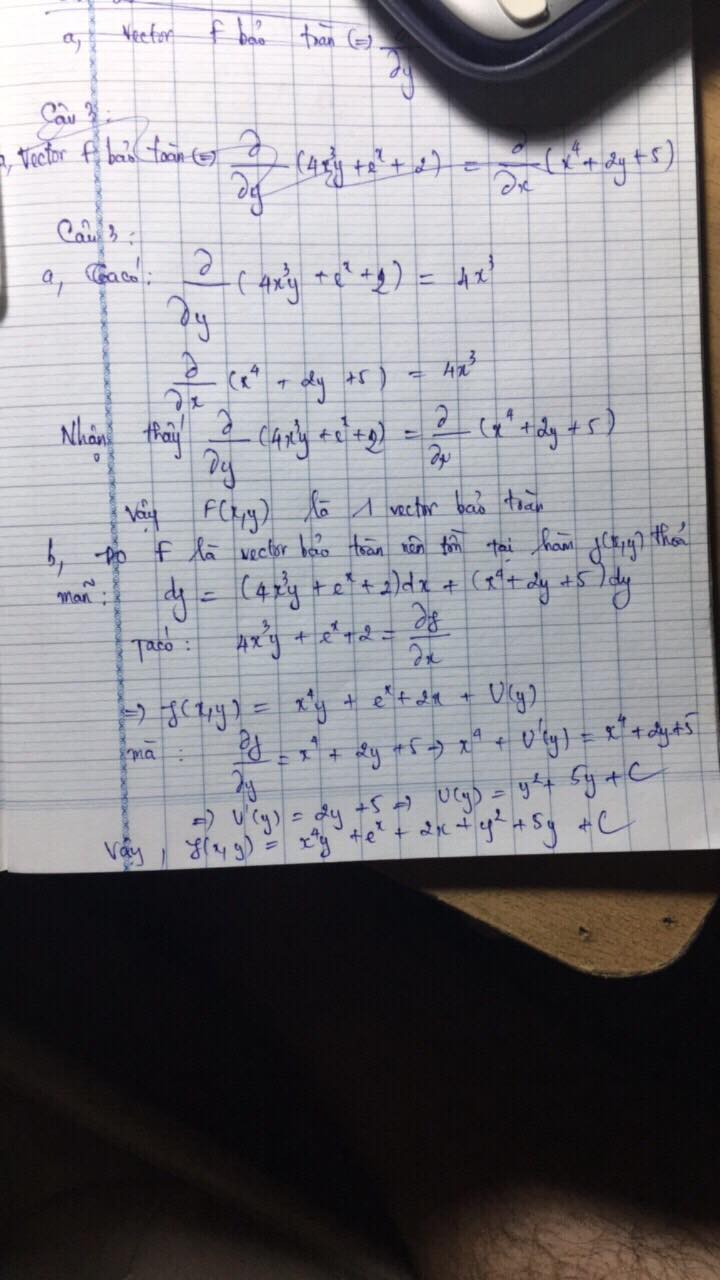 a, Vector f bảo toàn (=) ∂/∂y
Câu 3:
a, Vector f bảo toàn (=) ∂/∂y (4x³y + eˣ + 2) = ∂/∂x (x⁴ + 2y + 5)
Câu 3:
a, Ta có: ∂/∂y (4x³y + eˣ + 2) = 4x³
∂/∂x (x⁴ + 2y + 5) = 4x³
Nhận thấy ∂/∂y (4x³y + eˣ + 2) = ∂/∂x (x⁴ + 2y + 5)
Vậy F(x,y) là 1 vector bảo toàn
b, Do F là vector bảo toàn nên tồn tại hàm f(x,y) thoả
mãn: df = (4x³y + eˣ + 2)dx + (x⁴ + 2y + 5)dy
Ta có: 4x³y + eˣ + 2 = ∂f/∂x
=> f(x,y) = x⁴y + eˣ + 2x + U(y)
mà: ∂f/∂y = x⁴ + 2y + 5 => x⁴ + U'(y) = x⁴ + 2y + 5
=> U'(y) = 2y + 5 => U(y) = y² + 5y + C
Vậy, f(x,y) = x⁴y + eˣ + 2x + y² + 5y + C